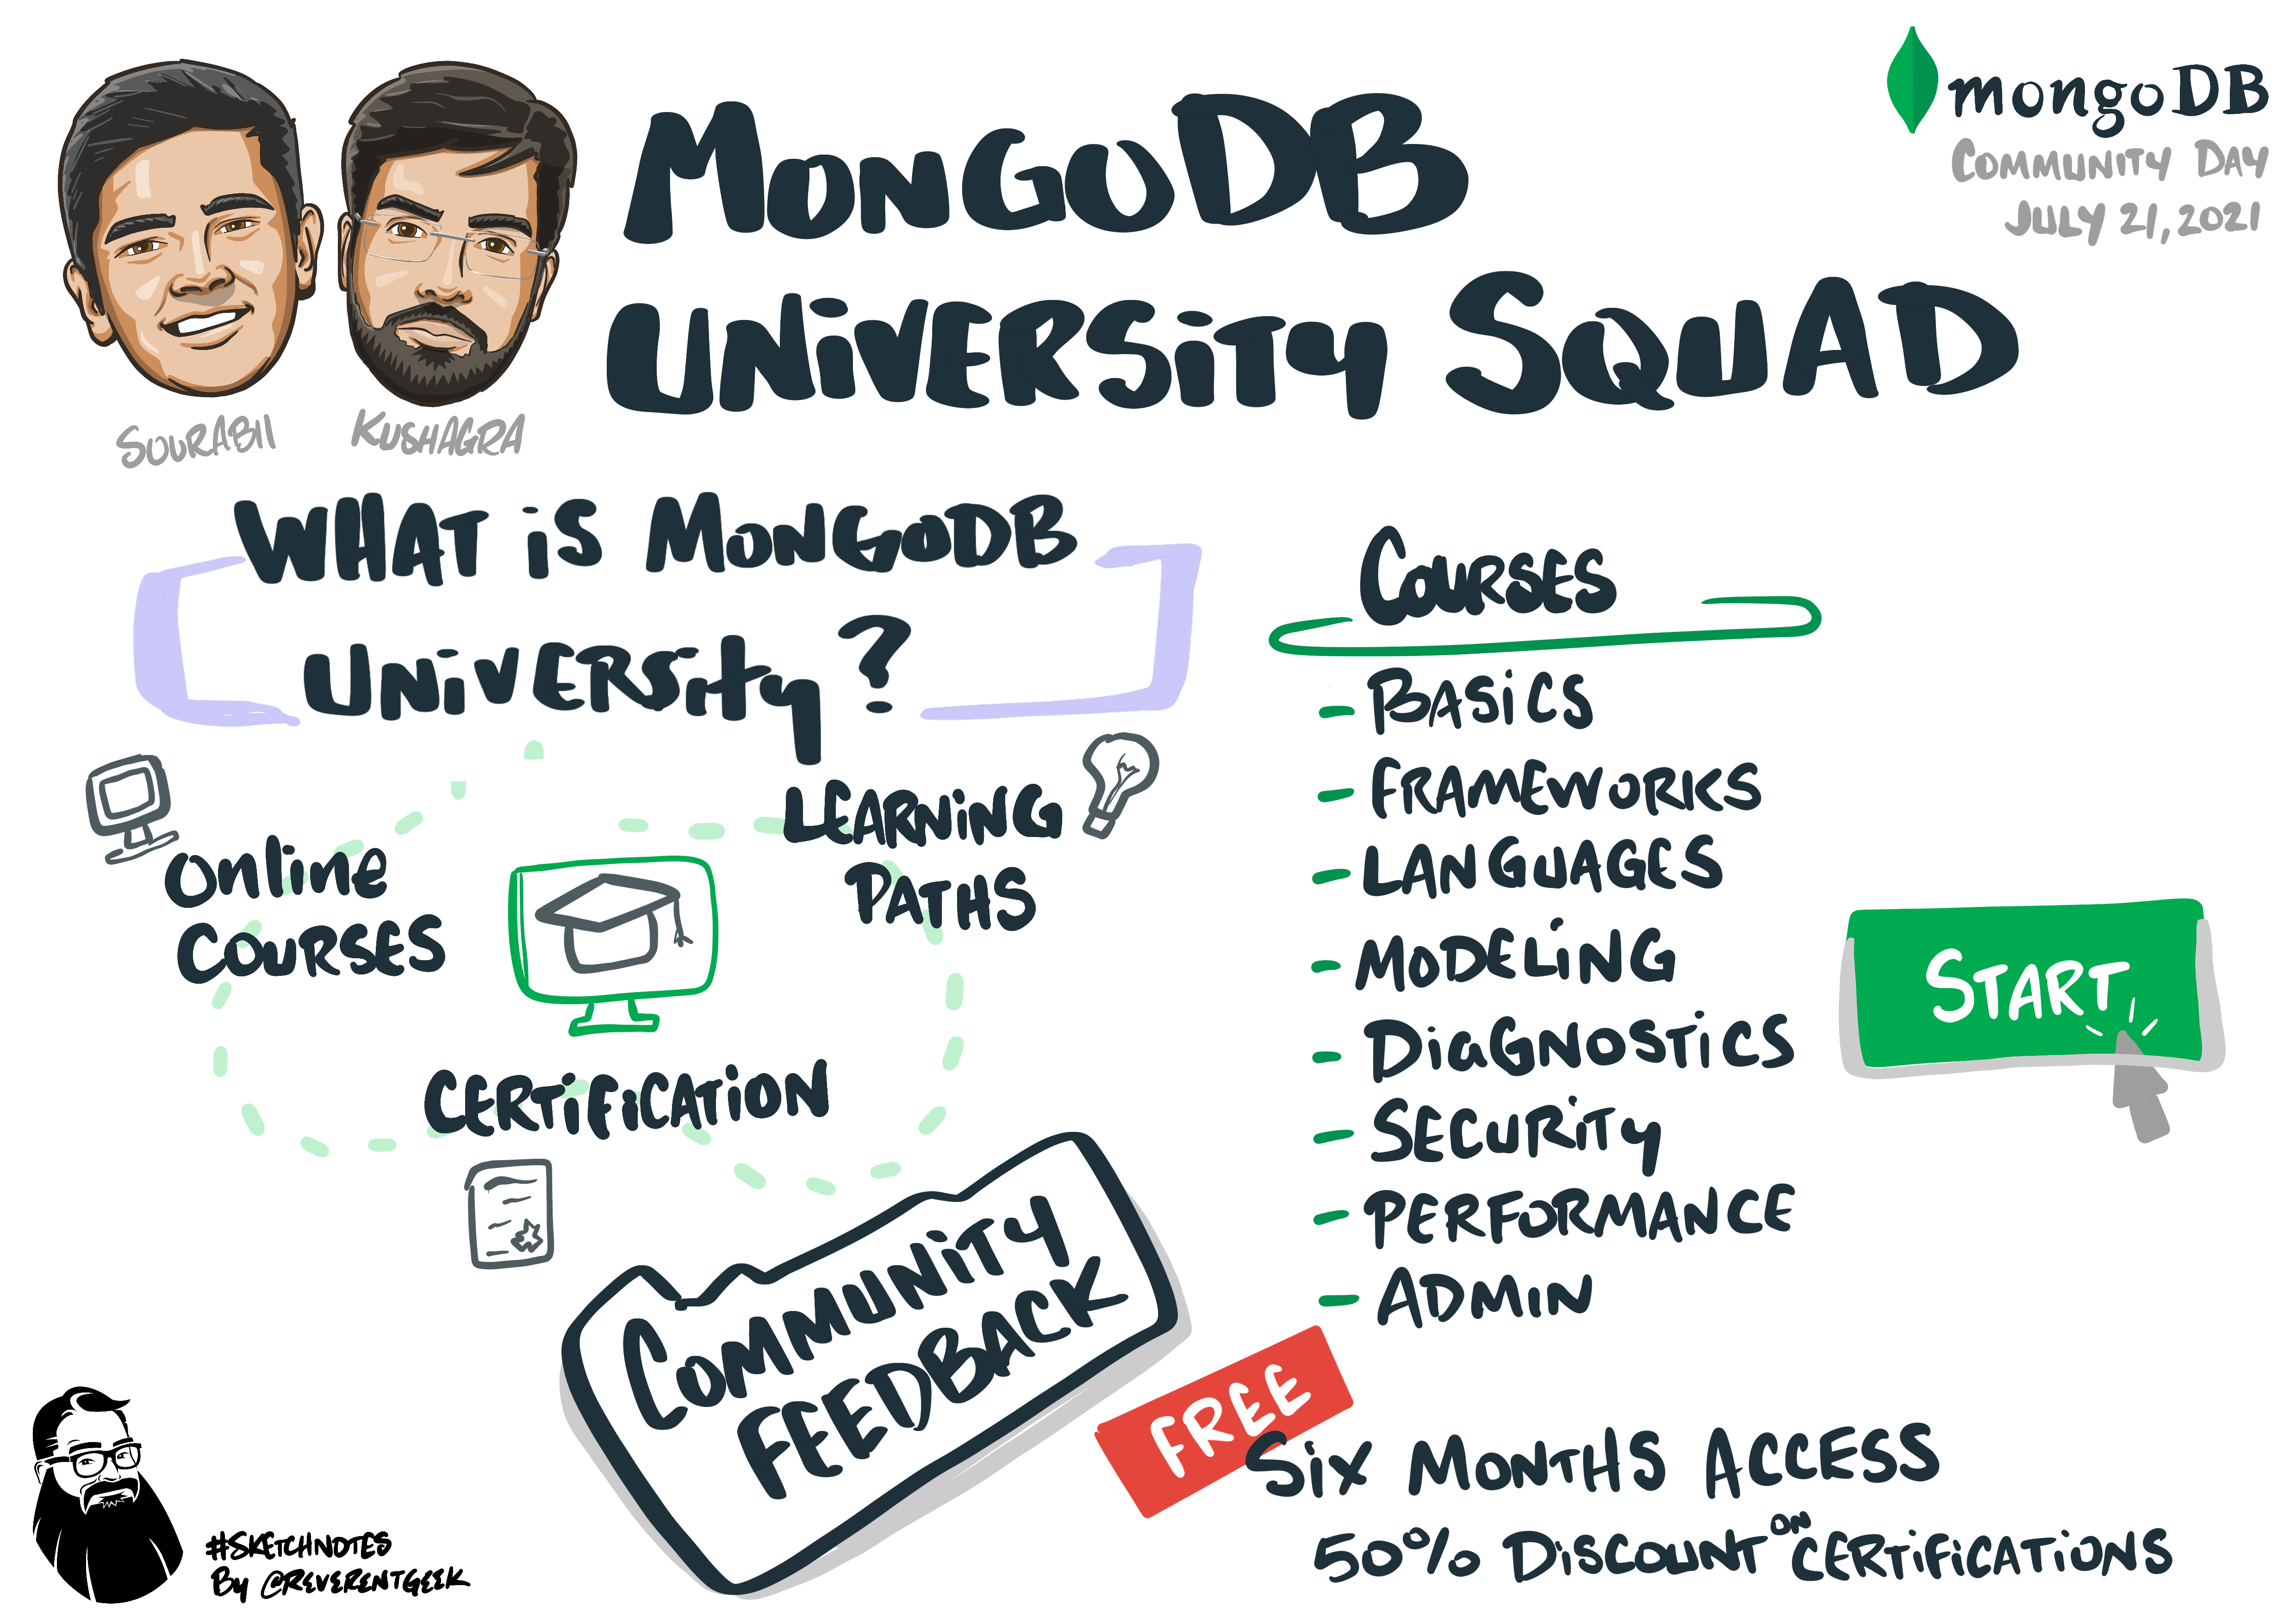 MongoDB
University Squad
mongoDB
Community Day
July 21, 2021
Sourabh
Kushagra
What is MongoDB
University?
Online
Courses
Learning
Paths
Certification
Community
Feedback
Courses
- Basics
- Frameworks
- Languages
- Modeling
- Diagnostics
- Security
- Performance
- Admin
Start
Free
Six Months Access
50% Discount on Certifications
#Sketchnotes
By @ReverentGeek